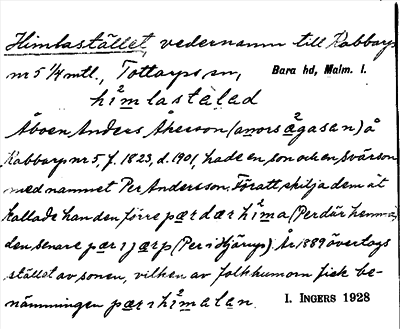 Himlastället, vedernamn till Kabbarp
nr 5 1/4 mtl., Tottarps sn, Bara hd, Malm. l.
hi²mlastälad
Åboen Anders Åkesson (anors ä²gasen) å
Kabbarp nr 5, f. 1823, d. 1901, hade en son och en svärson
med namnet Per Andersson. För att skilja dem åt
kallade han den förre pær dær hi²ma (Per där hemma),
den senare pær i jærp (Per i Hjärup). År 1889 övertogs
stället av sonen, vilken av folkhumorn fick be-
nämningen pær i hi²malen.
I. INGERS 1928